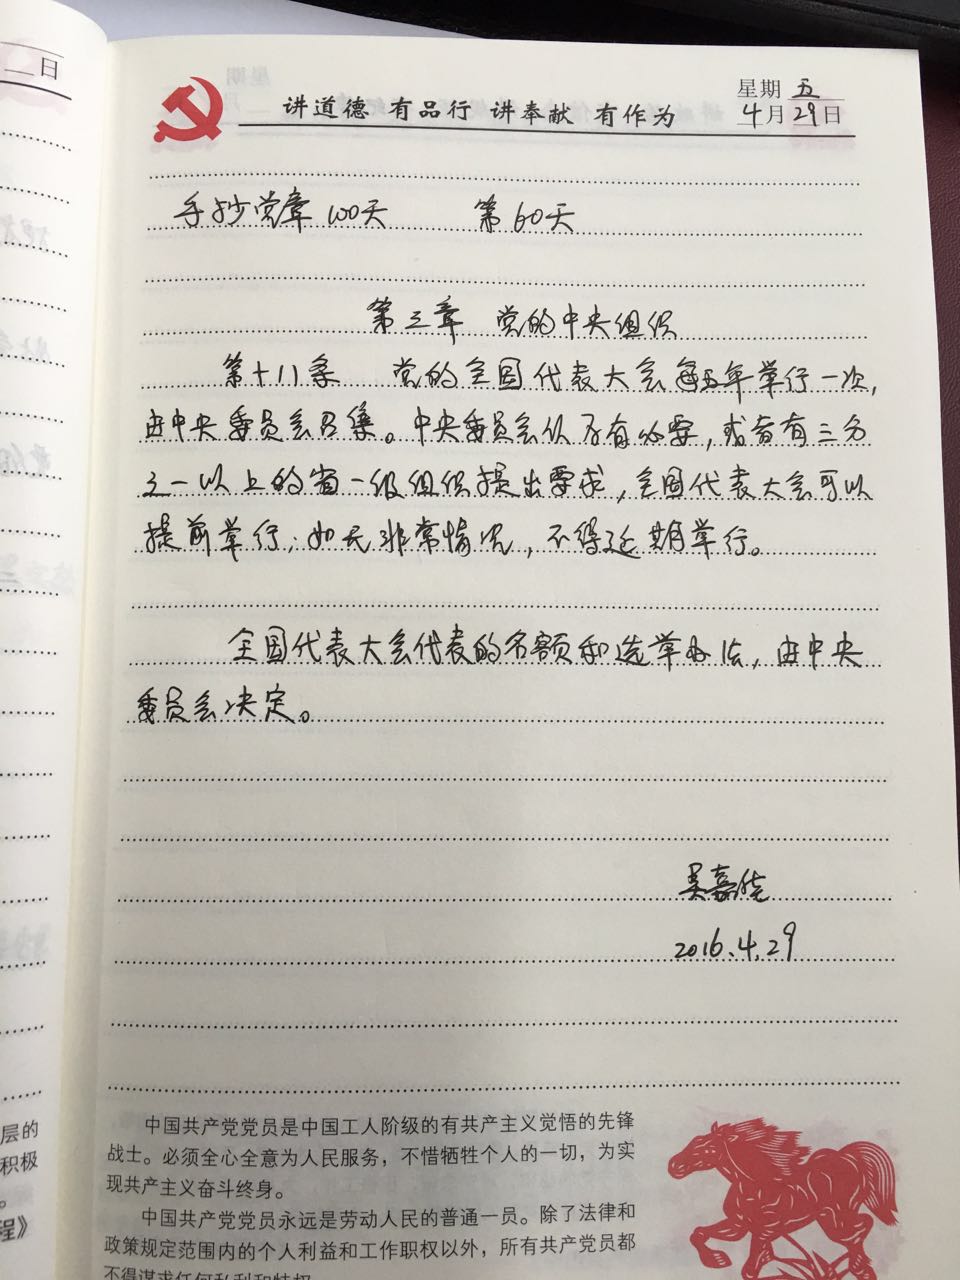 日
讲道德 有品行 讲奉献 有作为
星期 五
4月29日
手抄党章100天 第60天
第三章 党的中央组织
第十八条 党的全国代表大会每五年举行一次,
由中央委员会召集。中央委员会认为有必要,或者有三分
之一以上的省一级组织提出要求,全国代表大会可以
提前举行;如无非常情况,不得延期举行。
全国代表大会代表的名额和选举办法,由中央
委员会决定。
2016.4.29
中国共产党党员是中国工人阶级的有共产主义觉悟的先锋
战士。必须全心全意为人民服务，不惜牺牲个人的一切，为实
现共产主义奋斗终身。
中国共产党党员永远是劳动人民的普通一员。除了法律和
政策规定范围内的个人利益和工作职权以外，所有共产党员都
不得谋求任何私利和特权
层的
积极
。
程》